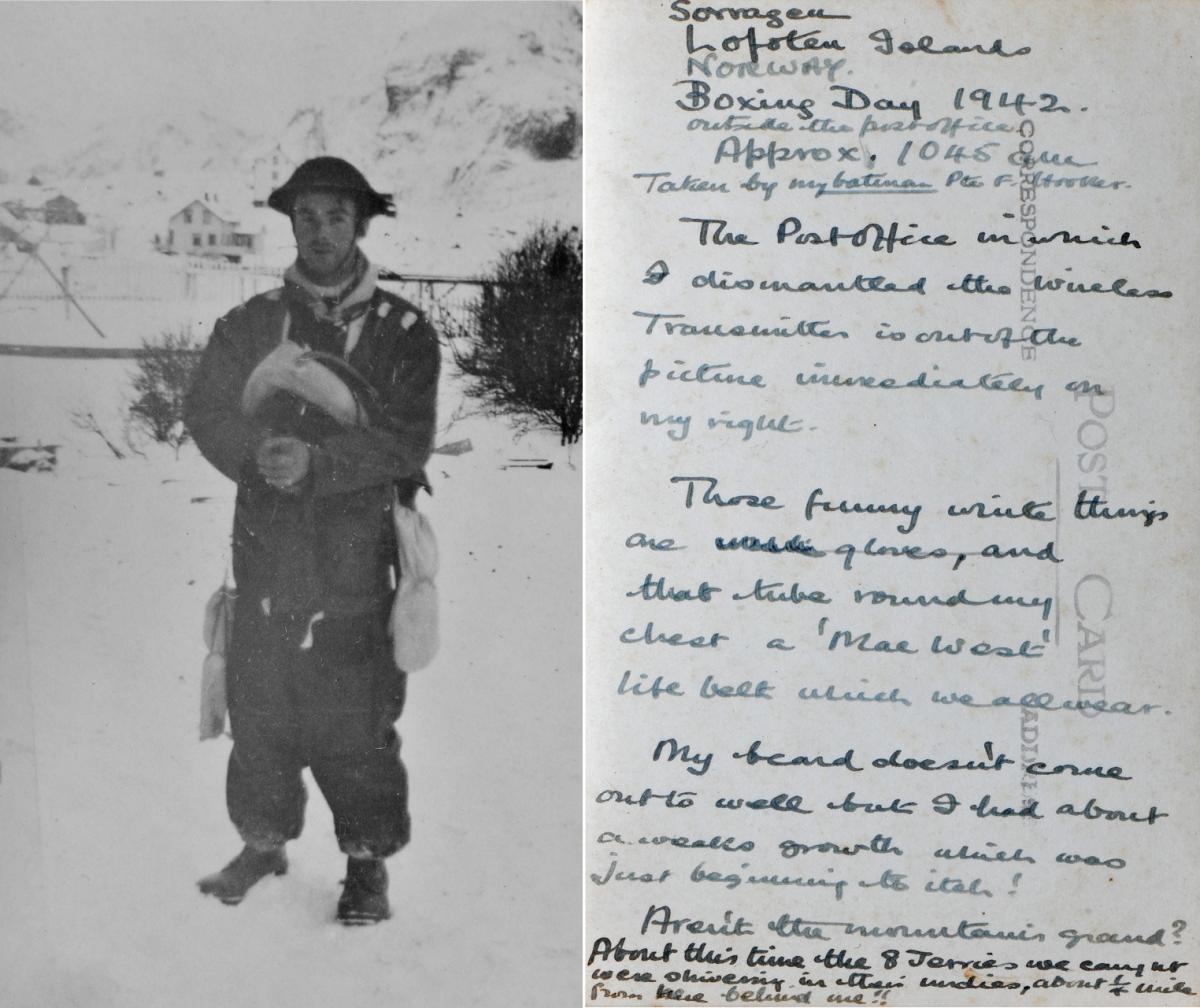 Sorvagen
Lofoten Islands
NORWAY.
Boxing Day 1942.
outside the post office
Approx. 1045 am
Taken by my batman Pte F. Hooker.
The Post Office in which
I dismantled the Wireless
Transmitter is out of the
picture immediately on
my right.
Those funny white things
are gloves, and
that tube round my
chest a 'Mae West'
life belt which we all wear.
My beard doesn't come
out to well but I had about
a weeks growth which was
just beginning to itch!
Aren't the mountains grand?
About this time the 8 Jerries we caught
were shivering in their undies, about ½ mile
from here behind me!!
CORRESPONDENCE
POST CARD
ADDRESS